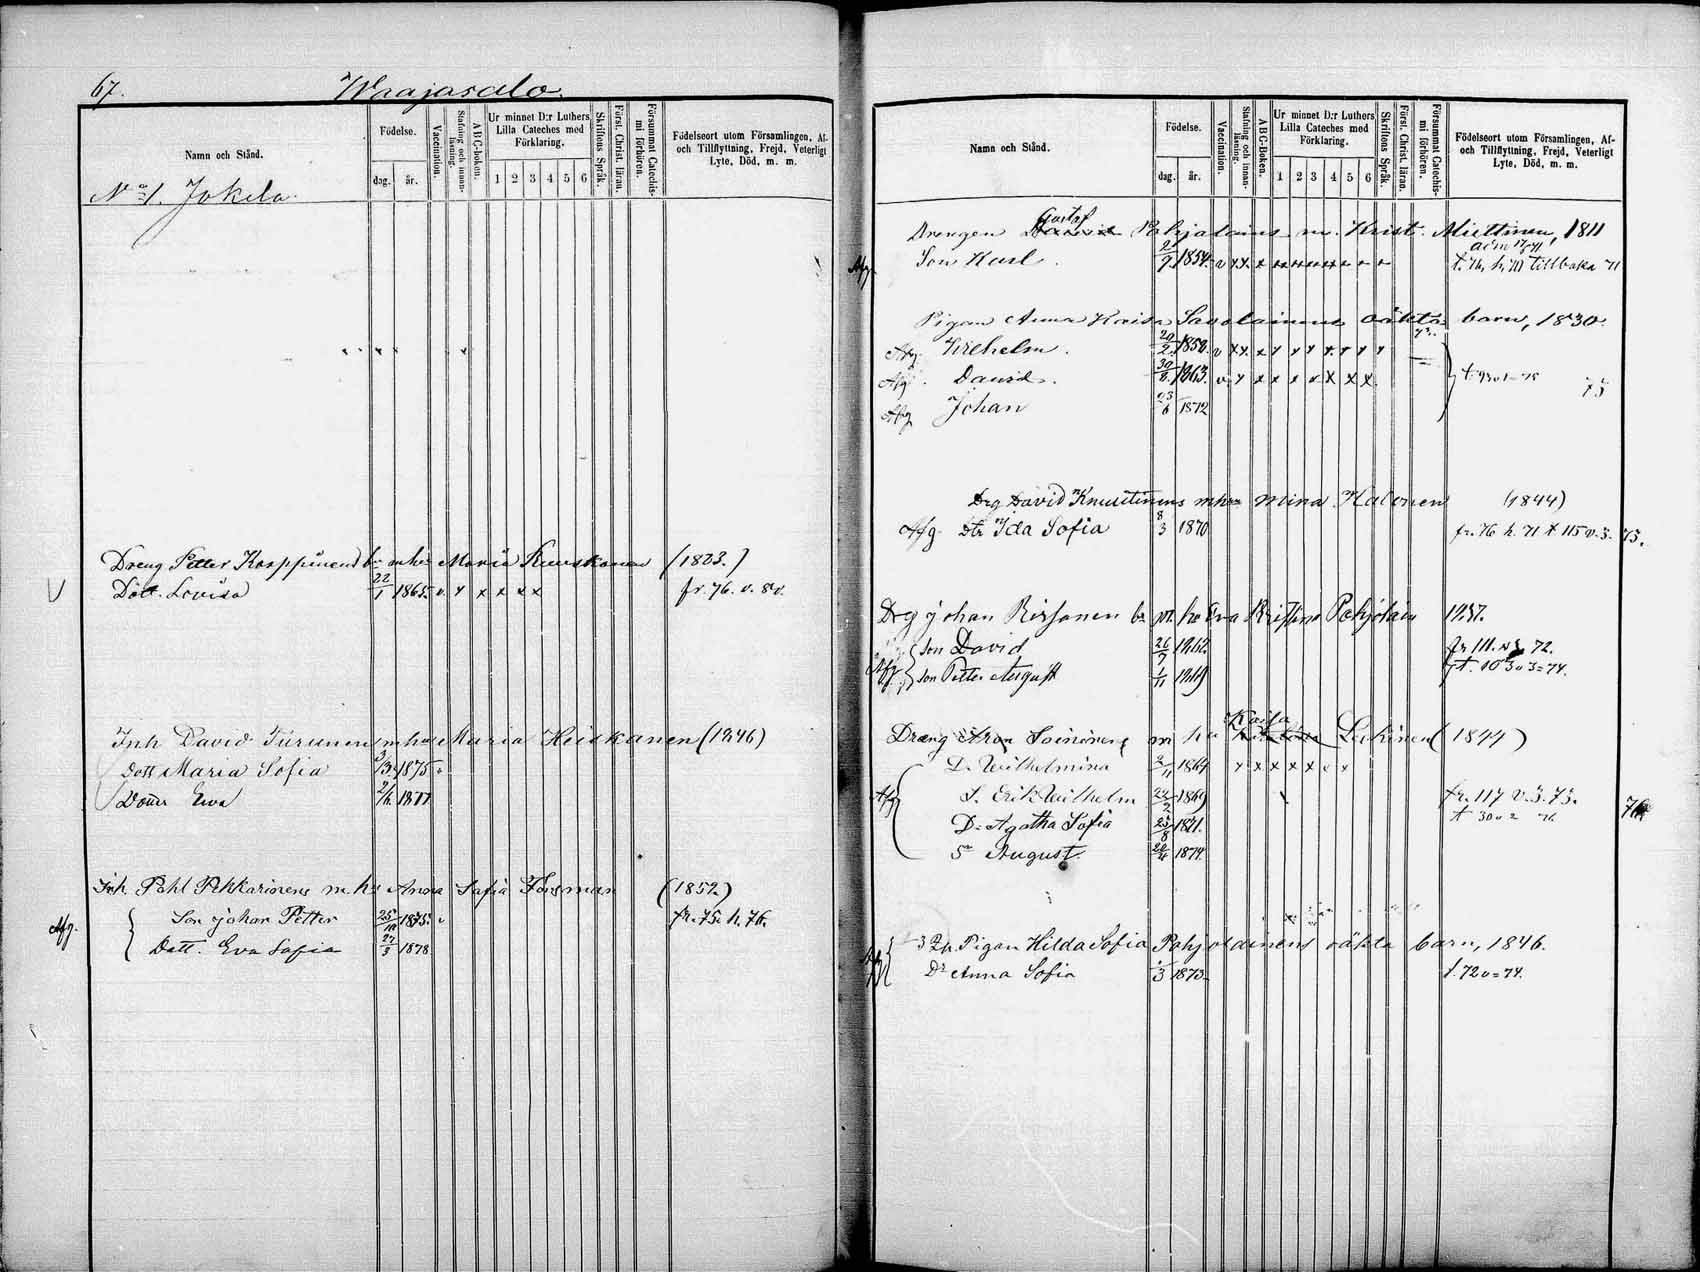 67. Waajasalo.
Namn och Stånd.
Födelse.
dag. år.
Vaccination.
Stafning och innanläsning.
ABC-boken.
Ur minnet D:r Luthers Lilla Cateches med Förklaring.
1 2 3 4 5 6
Skriftens Språk.
Först. Christ. läran.
Försummat Catechismi förhören.
Födelseort utom Församlingen, Af- och Tillflyttning, Frejd, Veterligt Lyte, Död, m. m.
No 1. Jokela
Dreng Petter Korppinens mho Maria (1823.)
Dött. Lovisa 22/1 1865 v. x x x x x fr. 76. v. 80.
Inh David Turunens mho Maria Heiskanen (1846)
Dott Maria Sofia 3/3 1875
Dotter Eva 2/6 1877
Inh. Pohl Pekkarinens m.h. Anna Sofia Forsman (1852)
Afg. Son Johan Petter 25/10 1875 v fr. 75. h. 76.
Dött. Eva Sofia 27/3 1878
Namn och Stånd.
Födelse.
dag. år.
Vaccination.
Stafning och innanläsning.
ABC-Boken.
Ur minnet D:r Luthers Lilla Cateches med Förklaring.
1 2 3 4 5 6
Skriftens Språk.
Först. Christ. läran.
Försummat Catechismi förhören.
Födelseort utom Församlingen, Af- och Tillflyttning, Frejd, Veterligt Lyte, Död, m. m.
Gustaf
Drengen David Pohjolains m. Krist. Miettinen, 1811
Afg. Son Karl. 2/9 1854 v x x x x x x x tillbaka 71
Pigan Anna Kaisa Savolainens oäkta barn, 1830.
Afg. Wilhelm. 1852. v x x x x x x x x
Afg. David. 30/8 1863. v x x x x x x x x 75
Afg Johan 23/6 1872
Drg David Knuutinens mho Mina Halonen (1844)
Afg. Dtr Ida Sofia 8/3 1870 fr. 76 h. 71 t 115 v. 3. 75.
Drg Johan m. ho Eva Kristina Pohjolain 1837.
Son David 26/9 1862 fr 111. v 3 72.
Afg. Son Petter August 1/11 1869 t. 103 v 3 = 74.
Kaisa
Dräng Aron Soininens m ho Leskinen (1844)
D. Wilhelmina 2/11 1864 x x x x x x x
Afg S. Erik Wilhelm 24/2 1869 fr. 117 v. 3. 73.
D. Agatha Sofia 25/8 1871. t 30 v 2 76 76
Sn August. 1874.
Pigan Hilda Sofia Pohjolainens oäkta barn, 1846.
Afg Dr Anna Sofia 1/3 1873 t. 72 v = 74.